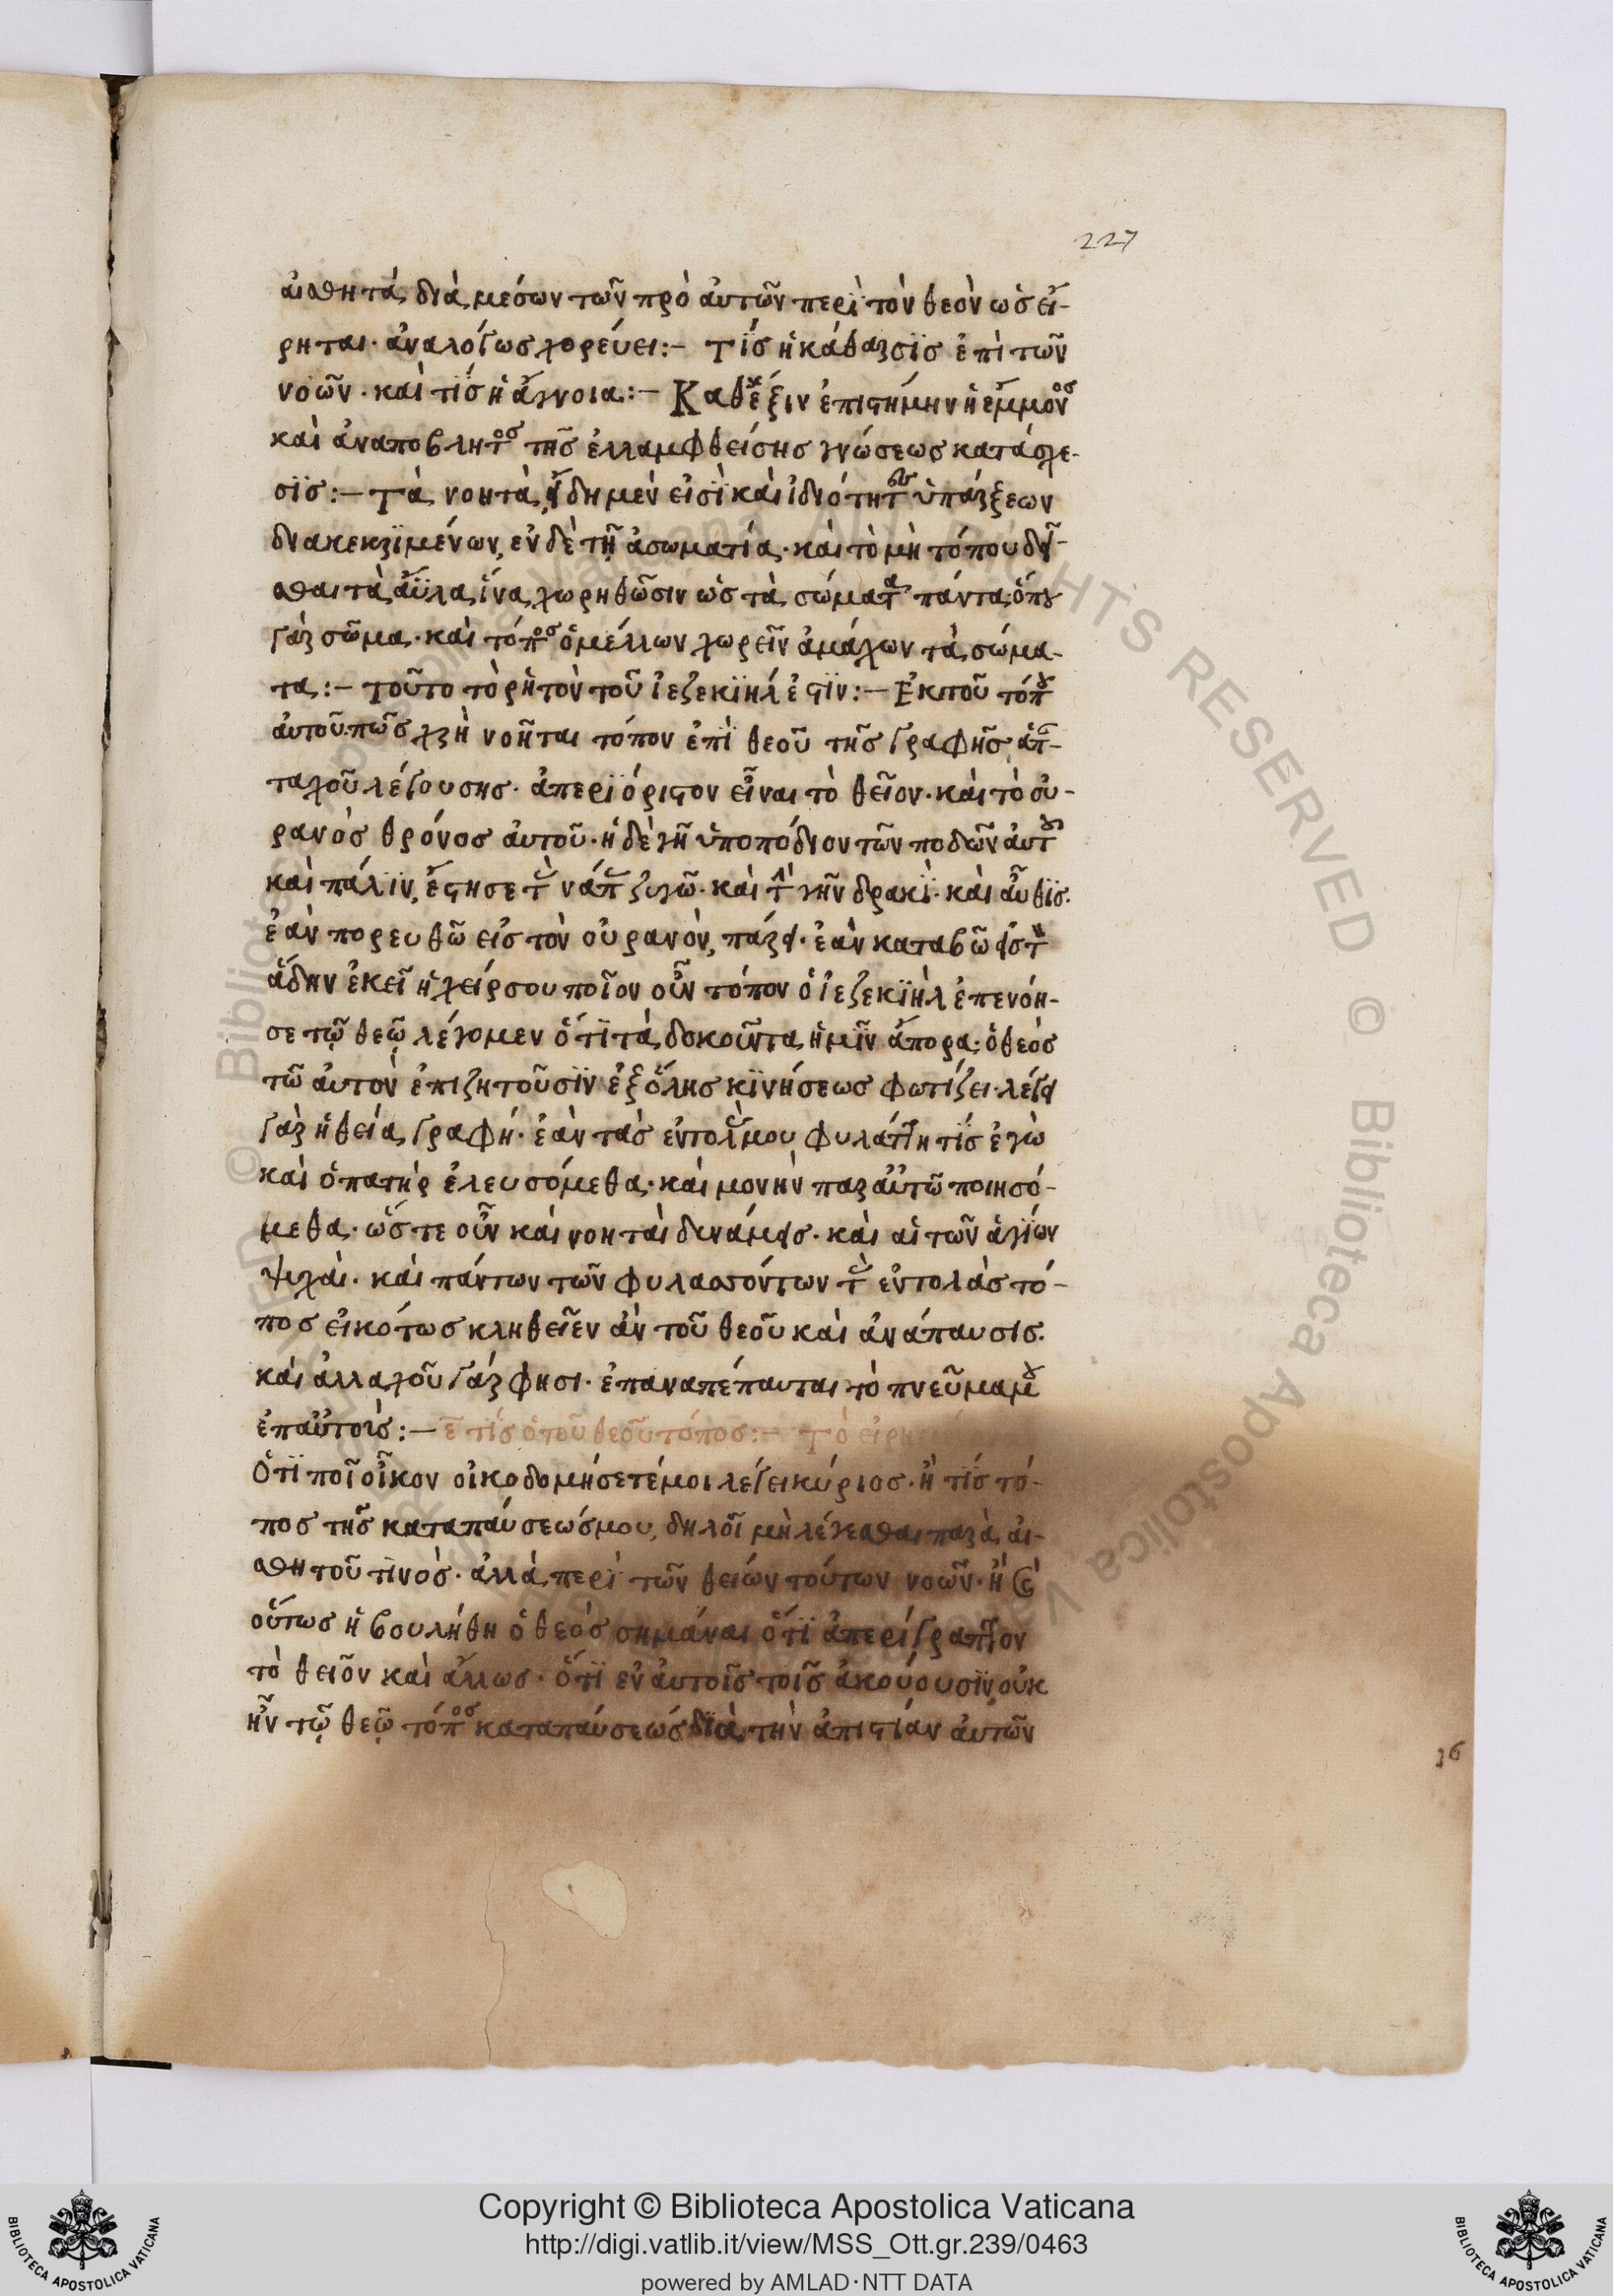 227
αἰσθητά, διὰ μέσων τῶν πρὸ ἀυτῶν περὶ τὸν θεὸν ὡσ εἴ-
ρηται· ἀναλόγωσ χορέυει:– Τίσ ἡ κάθαρσϊσ ἐπὶ τῶν
νοῶν· καὶ τίσ ἡ ἄγνοια:– Καθ ἕξιν ἐπιστήμην ἡ ἔμμονοσ
καὶ ἀναποβλητοσ τῆσ ἐλλαμφθείσησ γνώσεωσ κατάσχε-
σϊσ:– Τὰ νοητὰ, εἴδη μέν εἰσὶ καὶ ἰδιότητεσ ὑπάρξεων
διακεκριμένων, ἐν δὲ τῇ ἀσωματία· καὶ τὸ μὴ τόπου δεῖ-
σθαι τὰ ἄϋλα, ἵνα χωρηθῶσιν ὡσ τὰ σώματα πάντα· ὅπου
γὰρ σῶμα· καὶ τόποσ ὁ μέλλων χωρεῖν ἀμάχων τὰ σώμα-
τα:– τοῦτο τὸ ρῆτὸν τοῦ ἰεζεκϊήλ ἐστϊν:– Εκ που τόπου
ἀυτοῦ. πῶσ χρὴ νοῆται τόπον ἐπὶ θεοῦ τῆσ γραφῆσ ἁπ-
ταχοῦ λέγουσησ· ἀπερϊόριστον εἶναι τὸ θεῖον· καὶ τὸ οὐ-
ρανὸσ θρόνοσ ἀυτοῦ· ἡ δὲ γῆ ὑποπόδιον τῶν ποδῶν ἀυτοῦ
καὶ πάλϊν, ἔστησε τὰσ νάπασ ζυγῶ· καὶ τὴν γῆν δρακὶ· καὶ ἄυθϊσ·
ἐὰν πορευθῶ εἰσ τὸν οὐρανὸν, πάρει· ἐὰν καταβῶ εἰσ τὸν
ἅδην ἐκεῖ ἡ χείρ σου ποῖον οὖν τόπον ὁ ἰεζεκϊὴλ ἐπενόη-
σε τῷ θεῷ λέγομεν ὅτϊ τὰ δοκοῦντα ἡμῖν ἄπορα· ὁ θεὸσ
τῶ ἀυτὸν ἐπιζητοῦσϊν ἐξ ὅλησ κϊνήσεωσ φωτίζει· λέγει
γὰρ ἡ θεία γραφή· ἐὰν τὰσ ἐντολάσ μου φυλάττη τίσ ἐγὼ
καὶ ὁ πατὴρ ἐλευσόμεθα· καὶ μονὴν παρ αὐτῶ ποιησό-
μεθα· ὥστε οὖν καὶ νοηταὶ δυνάμεισ· καὶ αἱ τῶν ἁγίων
ψυχὰι· καὶ πάντων τῶν φυλασσόντων τὰσ ἐντολὰσ τό-
ποσ εἰκότωσ κληθεῖεν ἂν τοῦ θεοῦ καὶ ἀνάπαυσισ.
καὶ ἀλλαχοῦ γάρ φησι· ἐπαναπέπαυται τὸ πνεῦμα μου
ἐπ αὐτοῖσ:– ε τίσ ὁ τοῦ θεοῦ τόποσ:– Τὸ εἰρη
Ὁτϊ ποῖ οἶκον οἰκοδομήσετέ μοι λέγει κύριοσ· ἢ τίσ τό-
ποσ τῆσ καταπάυσεώσ μου, δηλοῖ μὴ λέγεσθαι παρὰ ἀι-
σθητοῦ τινὸσ· ἀλλὰ περὶ τῶν θείων τούτων νοῶν· ἢ καὶ
οὕτωσ ἠβουλήθη ὁ θεὸσ σημᾶναι ὅτϊ ἀπερίγραπτον
τὸ θεῖον καὶ ἄλλωσ· ὅτϊ ἐν ἀυτοῖσ τοῖσ ἀκούουσϊν οὐκ
ἦν τῷ θεῷ τόποσ καταπάυσεωσ διὰ τὴν ἀπιστίαν ἀυτῶν
Copyright © Biblioteca Apostolica Vaticana
http://digi.vatlib.it/view/MSS_Ott.gr.239/0463
powered by AMLAD·NTT DATA
BIBLIOTECA APOSTOLICA VATICANA
BIBLIOTECA APOSTOLICA VATICANA